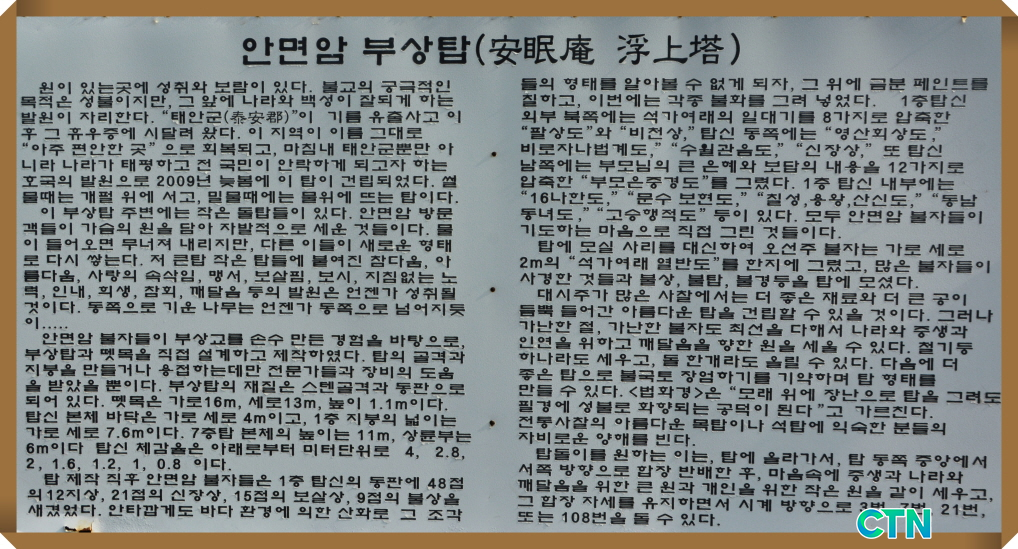 안면암 부상탑(安眠庵 浮上塔)
원이 있는곳에 성취와 보람이 있다. 불교의 궁극적인
목적은 성불이지만, 그 앞에 나라와 백성이 잘되게 하는
발원이 자리한다. “태안군(泰安郡)”이 기름 유출사고 이
후 그 휴우증에 시달려 왔다. 이 지역이 이름 그대로
“아주 편안한 곳” 으로 회복되고, 마침내 태안군뿐만 아
니라 나라가 태평하고 전 국민이 안락하게 되고자 하는
호국의 발원으로 2009년 늦봄에 이 탑이 건립되었다. 썰
물때는 개펄 위에 서고, 밀물때에는 물위에 뜨는 탑이다.
이 부상탑 주변에는 작은 돌탑들이 있다. 안면암 방문
객들이 가슴의 원을 담아 자발적으로 세운 것들이다. 물
이 들어오면 무너져 내리지만, 다른 이들이 새로운 형태
로 다시 쌓는다. 저 큰탑 작은 탑들에 붙여진 참다움, 아
름다움, 사랑의 속삭임, 맹서, 보살핌, 보시, 지침없는 노
력, 인내, 희생, 참회, 깨달음 등의 발원은 언젠가 성취될
것이다. 동쪽으로 기운 나무는 언젠가 동쪽으로 넘어지듯
이.....
안면암 불자들이 부상교를 손수 만든 경험을 바탕으로,
부상탑과 뗏목을 직접 설계하고 제작하였다. 탑의 골격과
지붕을 만들거나 용접하는데만 전문가들과 장비의 도움
을 받았을 뿐이다. 부상탑의 재질은 스텐골격과 동판으로
되어 있다. 뗏목은 가로16m, 세로13m, 높이 1.1m이다.
탑신 본체 바닥은 가로 세로 4m이고, 1층 지붕의 넓이는
가로 세로 7.6m이다. 7층탑 본체의 높이는 11m, 상륜부는
6m이다 탑신 체감율은 아래로부터 미터단위로 4, 2.8,
2, 1.6, 1.2, 1, 0.8 이다.
탑 제작 직후 안면암 불자들은 1층 탑신의 동판에 48점
의12지상, 21점의 신장상, 15점의 보살상, 9점의 불상을
새겼었다. 안타깝게도 바다 환경에 의한 산화로 그 조각
들의 형태를 알아볼 수 없게 되자, 그 위에 금분 페인트를
칠하고, 이번에는 각종 불화를 그려 넣었다. 1층탑신
외부 북쪽에는 석가여래의 일대기를 8가지로 압축한
“팔상도”와 “비천상,” 탑신 동쪽에는 “영산회상도,”
비로자나법계도,” “수월관음도,” “신장상,” 또 탑신
남쪽에는 부모님의 큰 은혜와 보답의 내용을 12가지로
압축한 “부모은중경도”를 그렸다. 1층 탑신 내부에는
“16나한도,” “문수 보현도,” “칠성,용왕,산신도,” “동남
동녀도,” “고승행적도” 등이 있다. 모두 안면암 불자들이
기도하는 마음으로 직접 그린 것들이다.
탑에 모실 사리를 대신하여 오선주 불자는 가로 세로
2m의 “석가여래 열반도”를 한지에 그렸고, 많은 불자들이
사경한 것들과 불상, 불탑, 불경등을 탑에 모셨다.
대시주가 많은 사찰에서는 더 좋은 재료와 더 큰 공이
듬뿍 들어간 아름다운 탑을 건립할 수 있을 것이다. 그러나
가난한 절, 가난한 불자도 최선을 다해서 나라와 중생과
인연을 위하고 깨달음을 향한 원을 세울 수 있다. 절기둥
하나라도 세우고, 돌 한개라도 올릴 수 있다. 다음에 더
좋은 탑으로 불국토 장엄하기를 기약하며 탑 형태를
만들 수 있다. <법화경>은 “모래 위에 장난으로 탑을 그려도
필경에 성불로 회향되는 공덕이 된다”고 가르친다.
전통사찰의 아름다운 목탑이나 석탑에 익숙한 분들의
자비로운 양해를 빈다.
탑돌이를 원하는 이는, 탑에 올라가서, 탑 동쪽 중앙에서
서쪽 방향으로 합장 반배한 후, 마음속에 중생과 나라와
깨달음을 위한 큰 원과 개인을 위한 작은 원을 같이 세우고,
그 합장 자세를 유지하면서 시계 방향으로 3번, 7번, 21번,
또는 108번을 돌 수 있다.
CTN